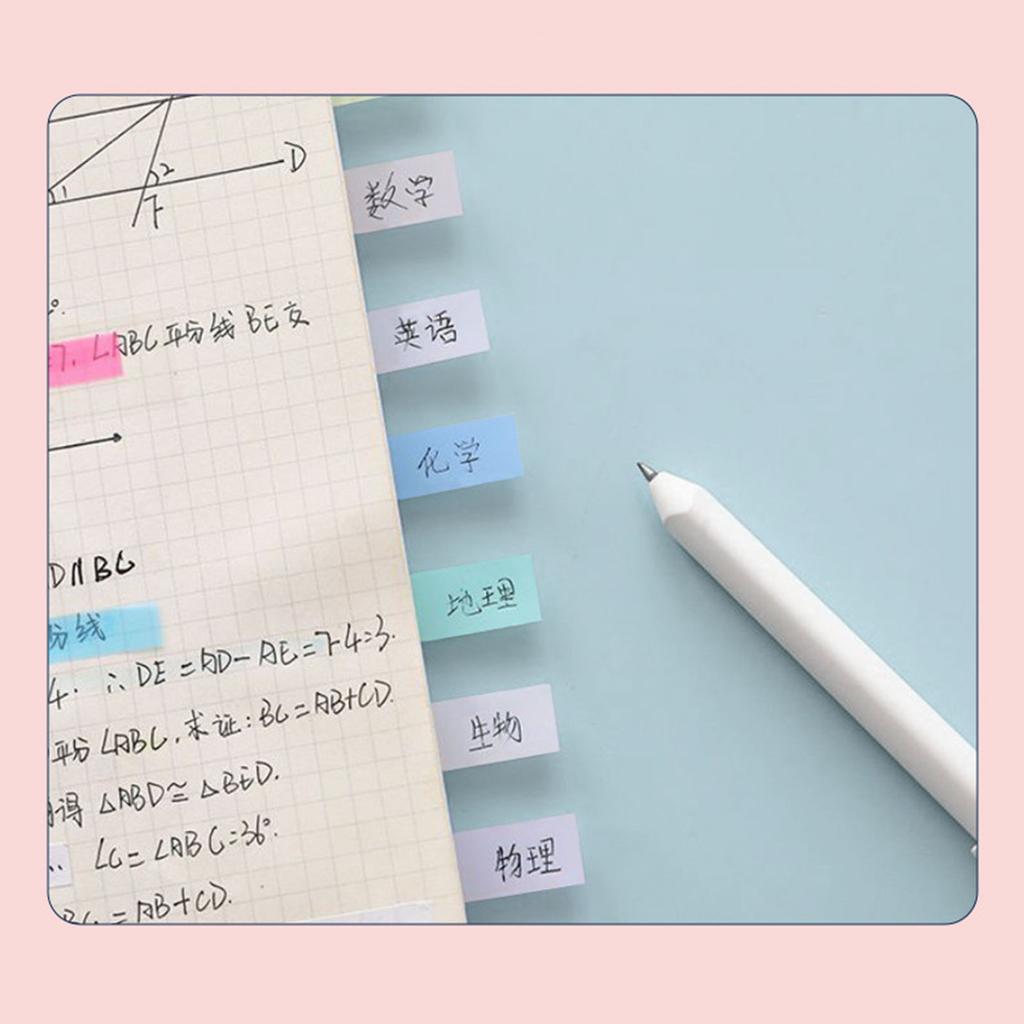 D
1
2
F
数学
7. ∠ABC平分线BE交
英语
化学
D∥BC
分线
地理
4. ∴DE=AD-AE=7-4=3.
平分∠ABC,求证:BC=AB+CD.
生物
得 △ABD≅△BED.
∠C=∠ABC=36°.
物理
BC=AB+CD.